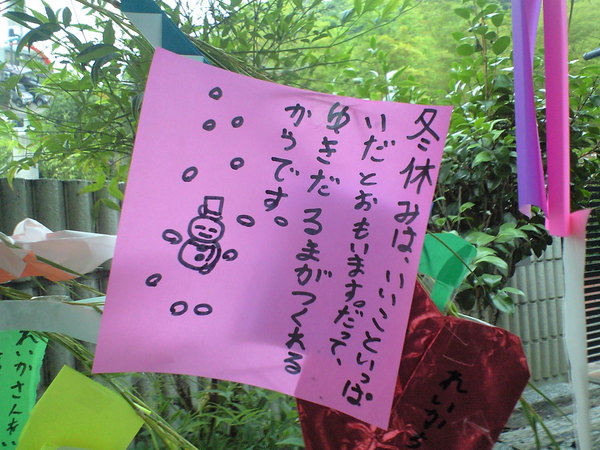 冬休みは、いいこといっぱ
いだとおもいます。だって、
ゆきだるまがつくれる
からです。
れいかさんれい
れいかち